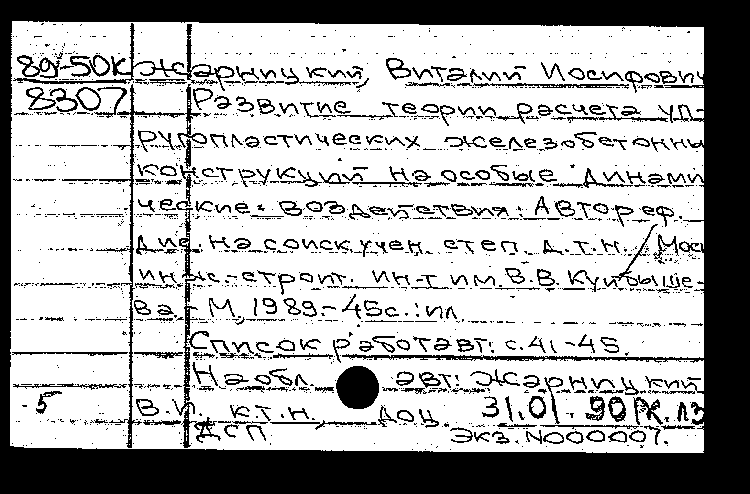 89-50К Жарницкий, Виталий Иосифович
8307 Развитие теории расчета уп-
ругопластических железобетонны
конструкций на особые динами
ческие воздействия: Автореф.
дис. на соиск. учен. степ. д.т.н. / Моск
инж.-строит. ин-т им. В.В. Куйбыше-
ва - М., 1989.-45с.:ил.
Список работ авт.: с.41-45.
На обл. авт: Жарницкий
-5 В.И., к.т.н., доц. 31.01.90 РК.ЛЭ
ДСП Экз. N000007.